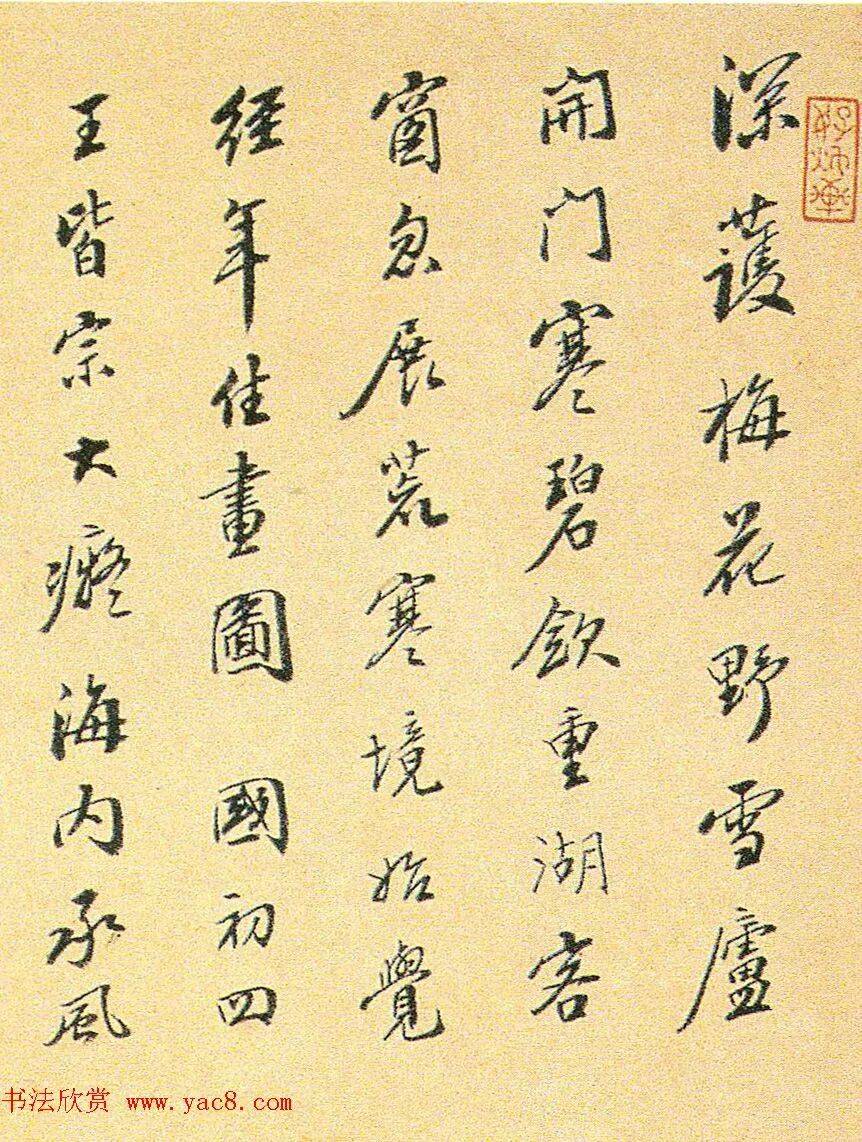 深護梅花野雪廬
開門寒碧飲重湖客
窗忽展荒寒境始覺
經年住畫圖 國初四
王皆宗大癡海内承風
书法欣赏 www.yac8.com